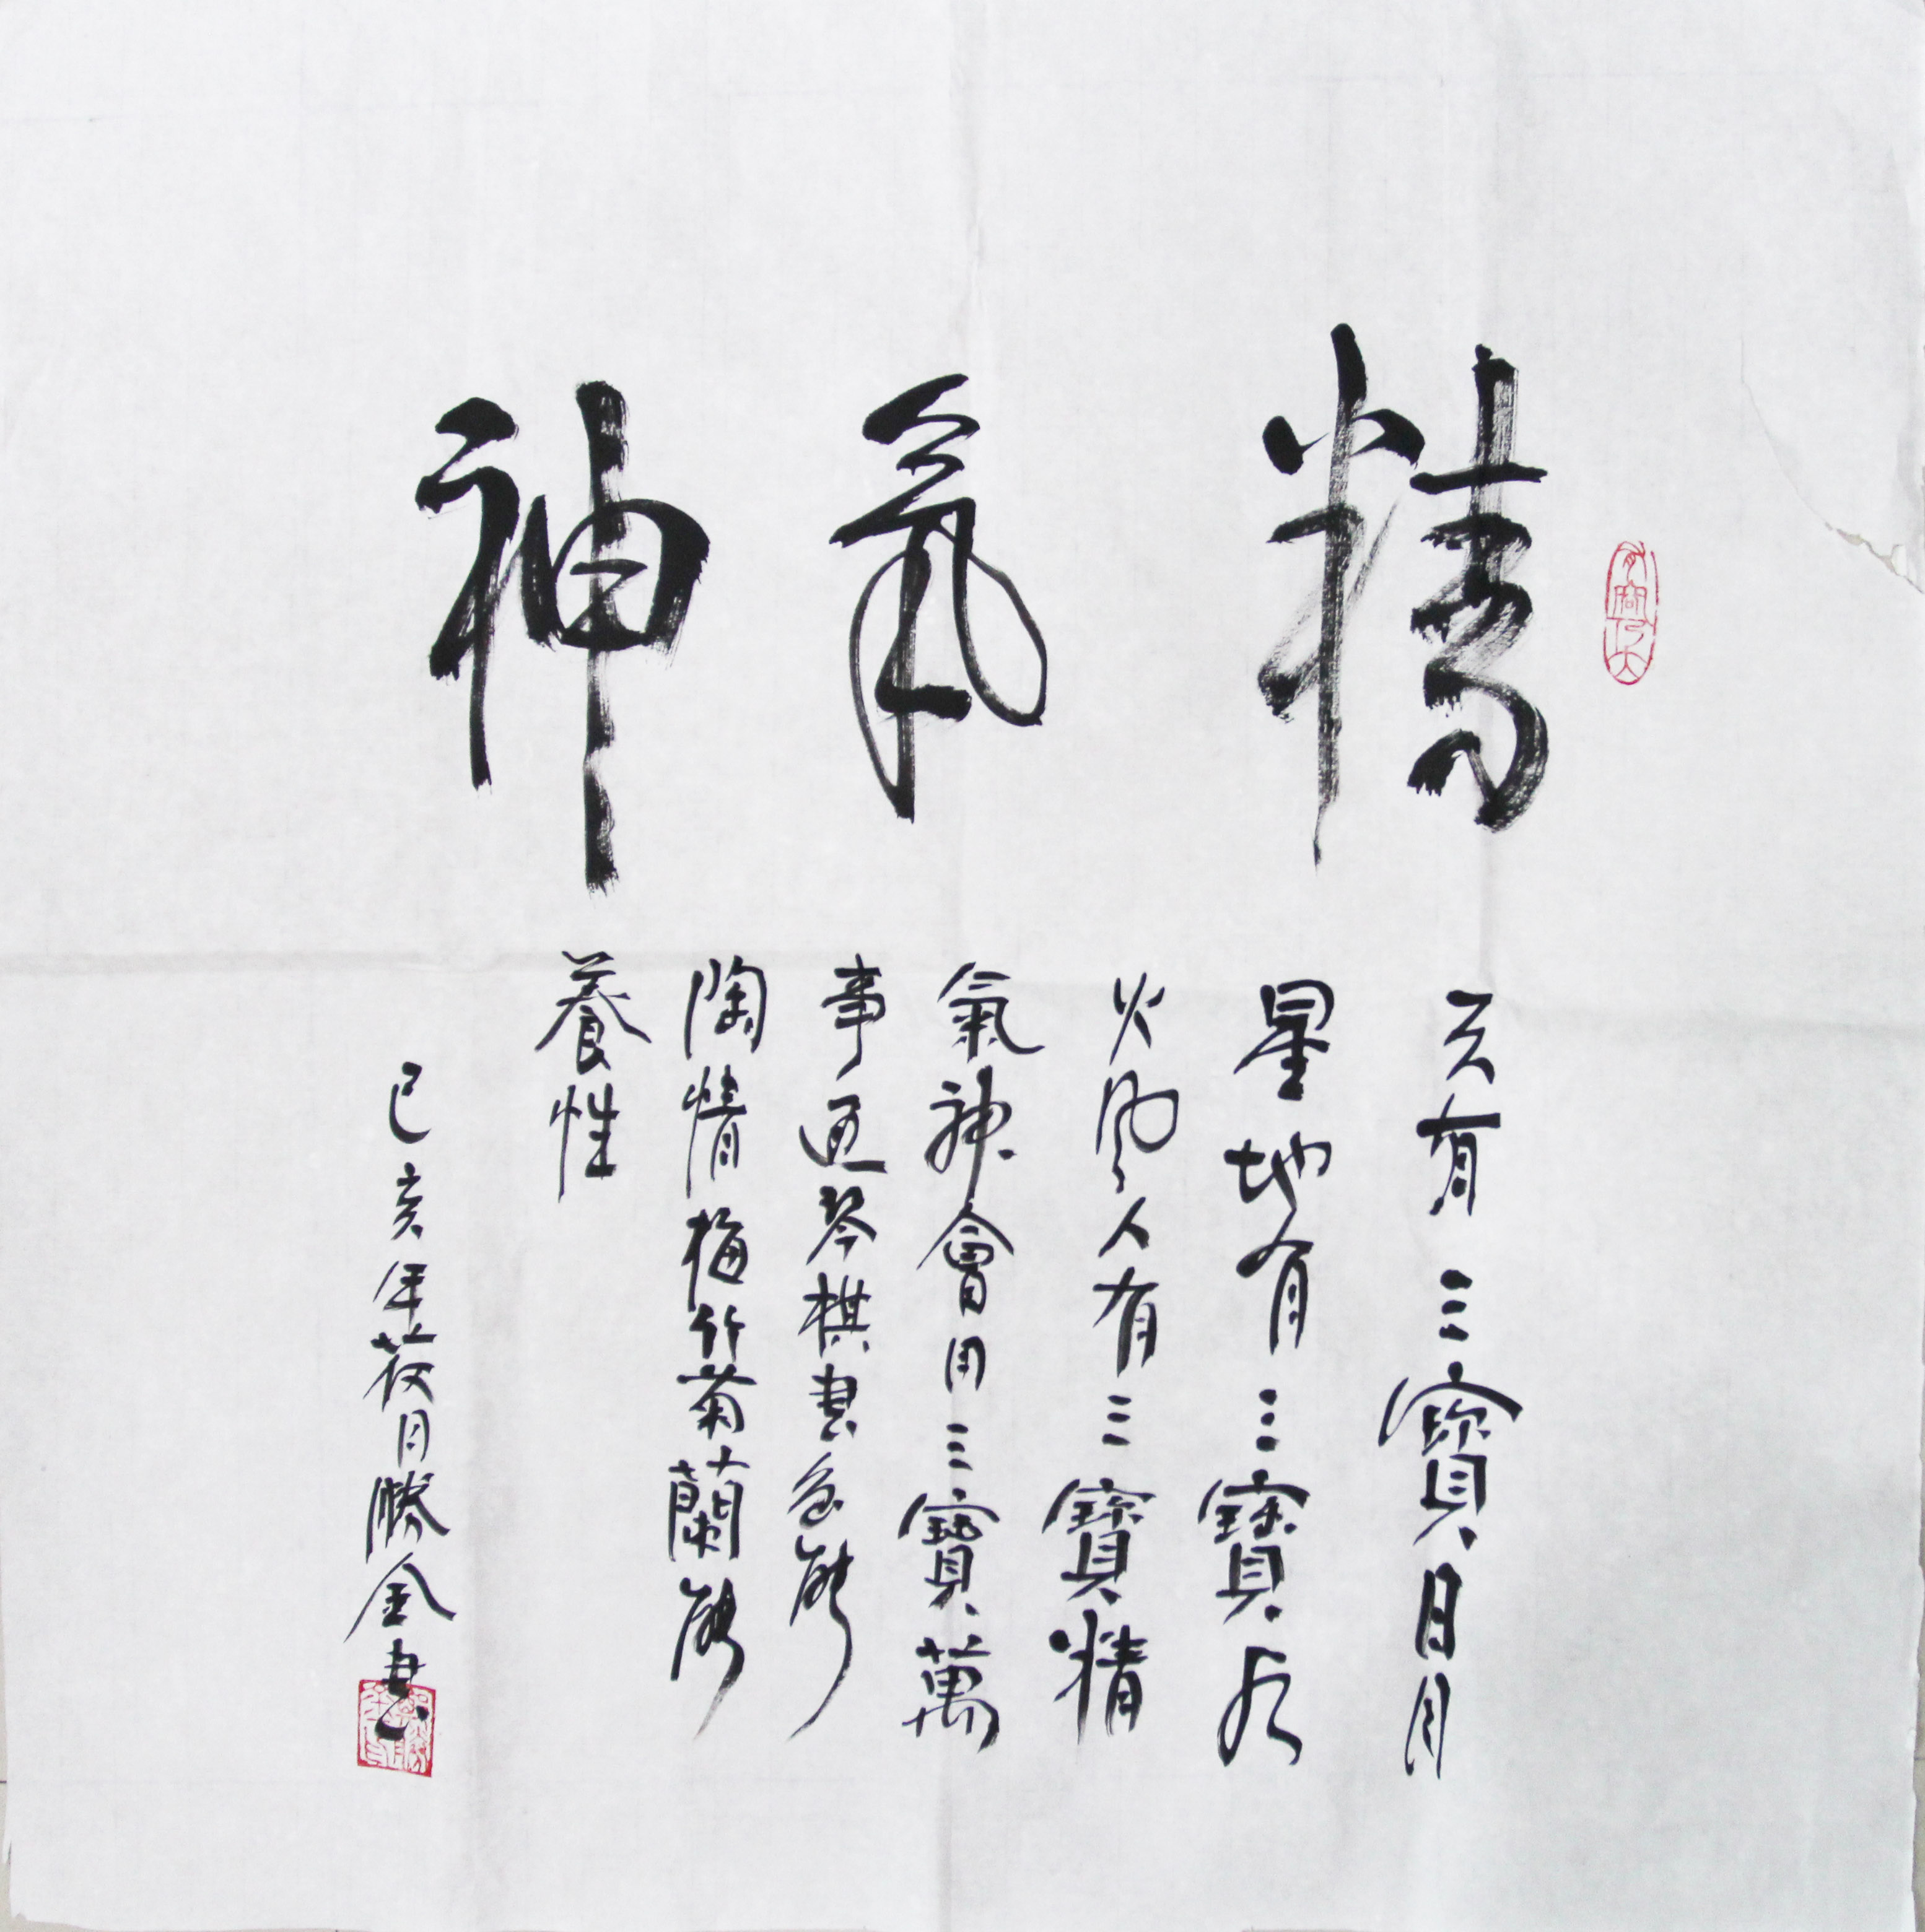 有容乃大
精氣神
天有三寶日月
星地有三寶水
火風人有三寶精
氣神會用三寶萬
事通琴棋書畫能
陶情梅竹菊蘭能
養性
己亥年月勝金書